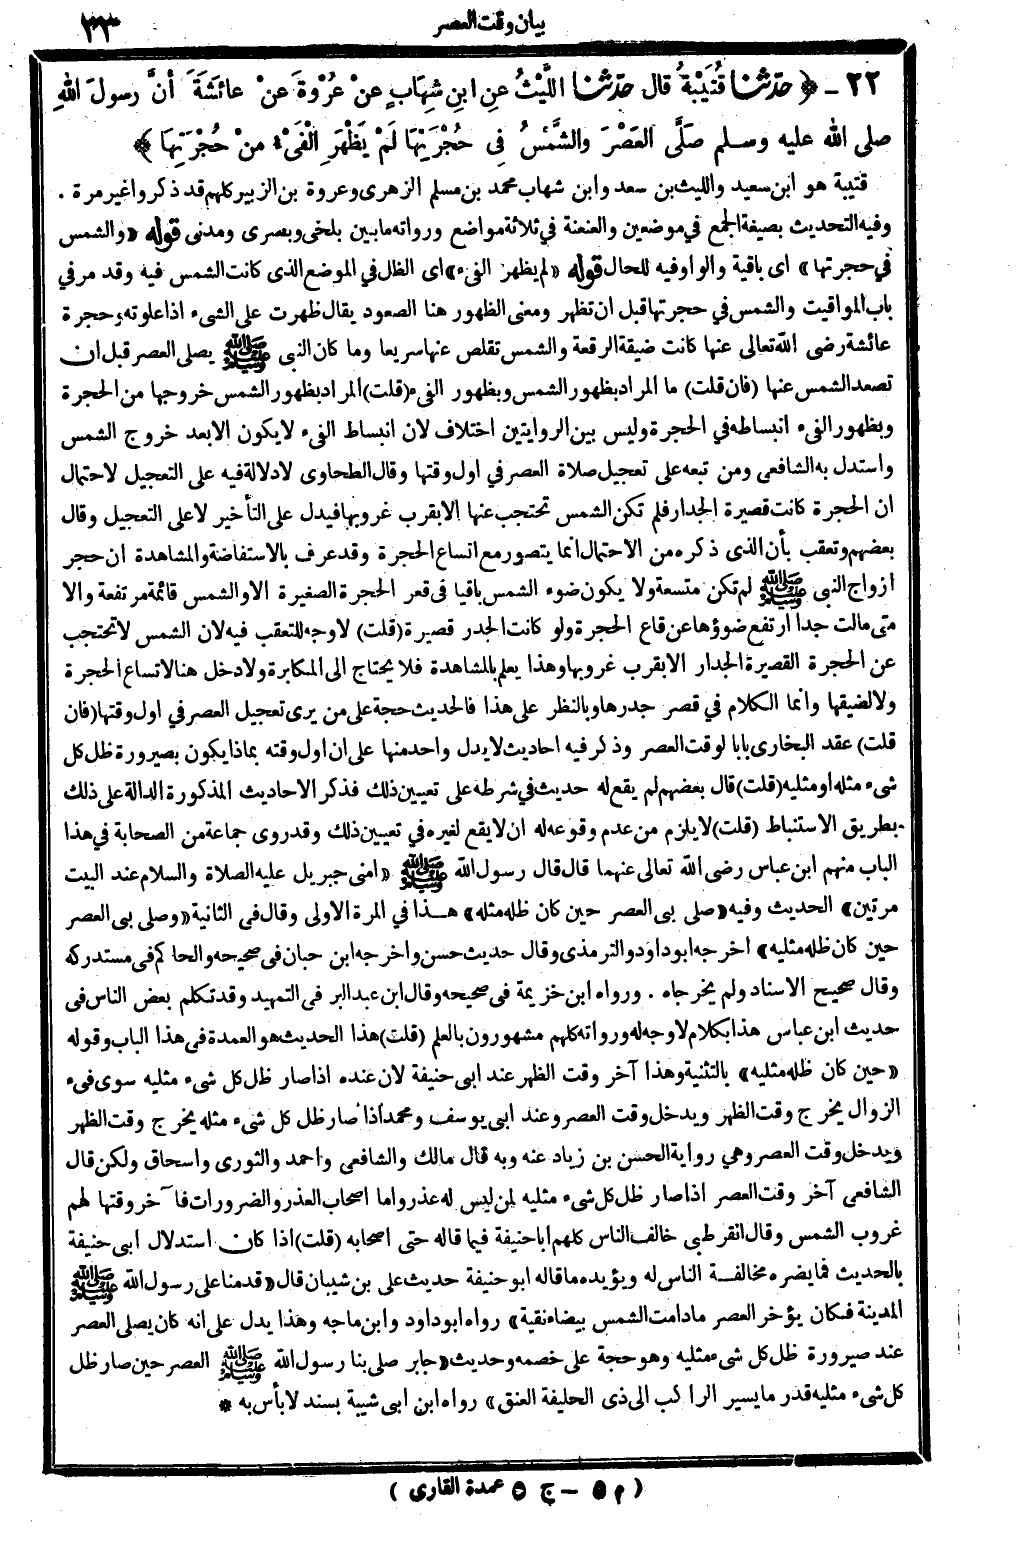 بيان وقت العصر
٣٣
٢٢ - ﴿ حدّثنا قُتَيْبَةُ قال حدّثنا اللَّيْثُ عنِ ابنِ شِهَابٍ عنْ عُرْوَةَ عنْ عائشَةَ أنَّ رسولَ اللهِ
صلى الله عليه وسلم صَلَّى العَصْرَ والشَّمْسُ فِى حُجْرَتِهَا لَمْ يَظْهَرِ الْفَىْءُ مِنْ حُجْرَتِهَا ﴾
قتيبة هو ابن سعيد والليث بن سعد وابن شهاب محمد بن مسلم الزهرى وعروة بن الزبير كلهم قد ذكروا غير مرة .
وفيه التحديث بصيغة الجمع في موضعين والعنعنة في ثلاثة مواضع ورواته مابين بلخى وبصرى ومدنى قوله «والشمس
في حجرتها» اى باقية والواو فيه للحال قوله «لم يظهر الفىء» اى الظل في الموضع الذى كانت الشمس فيه وقد مر في
باب المواقيت والشمس في حجرتها قبل ان تظهر ومعنى الظهور هنا الصعود يقال ظهرت على الشىء اذا علوته وحجرة
عائشة رضى الله تعالى عنها كانت ضيقة الرقعة والشمس تقلص عنها سريعا وما كان النبى ﷺ يصلى العصر قبل ان
تصعد الشمس عنها (فان قلت) ما المراد بظهور الشمس وبظهور الفىء (قلت) المراد بظهور الشمس خروجها من الحجرة
وبظهور الفىء انبساطه في الحجرة وليس بين الروايتين اختلاف لان انبساط الفىء لايكون الابعد خروج الشمس
واستدل به الشافعى ومن تبعه على تعجيل صلاة العصر في اول وقتها وقال الطحاوى لادلالة فيه على التعجيل لاحتمال
ان الحجرة كانت قصيرة الجدار فلم تكن الشمس تحتجب عنها الابقرب غروبها فيدل على التأخير لاعلى التعجيل وقال
بعضهم وتعقب بأن الذى ذكره من الاحتمال انما يتصور مع اتساع الحجرة وقد عرف بالاستفاضة والمشاهدة ان حجر
ازواج النبى ﷺ لم تكن متسعة ولا يكون ضوء الشمس باقيا في قعر الحجرة الصغيرة الا والشمس قائمة مرتفعة والا
متى مالت جدا ارتفع ضوؤها عن قاع الحجرة ولو كانت الجدر قصيرة (قلت) لاوجه للتعقب فيه لان الشمس لا تحتجب
عن الحجرة القصيرة الجدار الا بقرب غروبها وهذا يعلم بالمشاهدة فلا يحتاج الى المكابرة ولا دخل هنا لاتساع الحجرة
ولا لضيقها وانما الكلام في قصر جدرها وبالنظر على هذا فالحديث حجة على من يرى تعجيل العصر في اول وقتها (فان
قلت) عقد البخارى بابا لوقت العصر وذكر فيه احاديث لايدل واحد منها على ان اول وقته بماذا يكون بصيرورة ظل كل
شىء مثله او مثليه (قلت) قال بعضهم لم يقع له حديث في شرطه على تعيين ذلك فذكر الاحاديث المذكورة الدالة على ذلك
بطريق الاستنباط (قلت) لايلزم من عدم وقوعه له ان لايقع لغيره في تعيين ذلك وقد روى جماعة من الصحابة في هذا
الباب منهم ابن عباس رضى الله تعالى عنهما قال قال رسول الله ﷺ «امنى جبريل عليه الصلاة والسلام عند البيت
مرتين» الحديث وفيه «صلى بى العصر حين كان ظله مثله» هذا في المرة الاولى وقال فى الثانية «وصلى بى العصر
حين كان ظله مثليه» اخرجه ابو داود والترمذى وقال حديث حسن واخرجه ابن حبان فى صحيحه والحاكم فى مستدركه
وقال صحيح الاسناد ولم يخرجاه . ورواه ابن خزيمة فى صحيحه وقال ابن عبد البر فى التمهيد وقد تكلم بعض الناس فى
حديث ابن عباس هذا بكلام لاوجه له ورواته كلهم مشهورون بالعلم (قلت) هذا الحديث هو العمدة فى هذا الباب وقوله
«حين كان ظله مثليه» بالتثنية وهذا آخر وقت الظهر عند ابى حنيفة لان عنده اذا صار ظل كل شىء مثليه سوى فىء
الزوال يخرج وقت الظهر ويدخل وقت العصر وعند ابى يوسف ومحمد اذا صار ظل كل شىء مثله يخرج وقت الظهر
ويدخل وقت العصر وهي رواية الحسن بن زياد عنه وبه قال مالك والشافعى واحمد والثورى واسحاق ولكن قال
الشافعى آخر وقت العصر اذا صار ظل كل شىء مثليه لمن ليس له عذر واما اصحاب العذر والضرورات فآخر وقتها لهم
غروب الشمس وقال القرطبى خالف الناس كلهم أبا حنيفة فيما قاله حتى اصحابه (قلت) اذا كان استدلال ابى حنيفة
بالحديث فما يضره مخالفة الناس له ويؤيده ماقاله ابو حنيفة حديث على بن شيبان قال «قدمنا على رسول الله ﷺ
المدينة فكان يؤخر العصر مادامت الشمس بيضاء نقية» رواه ابو داود وابن ماجه وهذا يدل على انه كان يصلى العصر
عند صيرورة ظل كل شىء مثليه وهو حجة على خصمه وحديث «جابر صلى بنا رسول الله ﷺ العصر حين صار ظل
كل شىء مثليه قدر مايسير الراكب الى ذى الحليفة العنق» رواه ابن ابى شيبة بسند لابأس به *
( م ٥ - ج ٥ عمدة القارى )